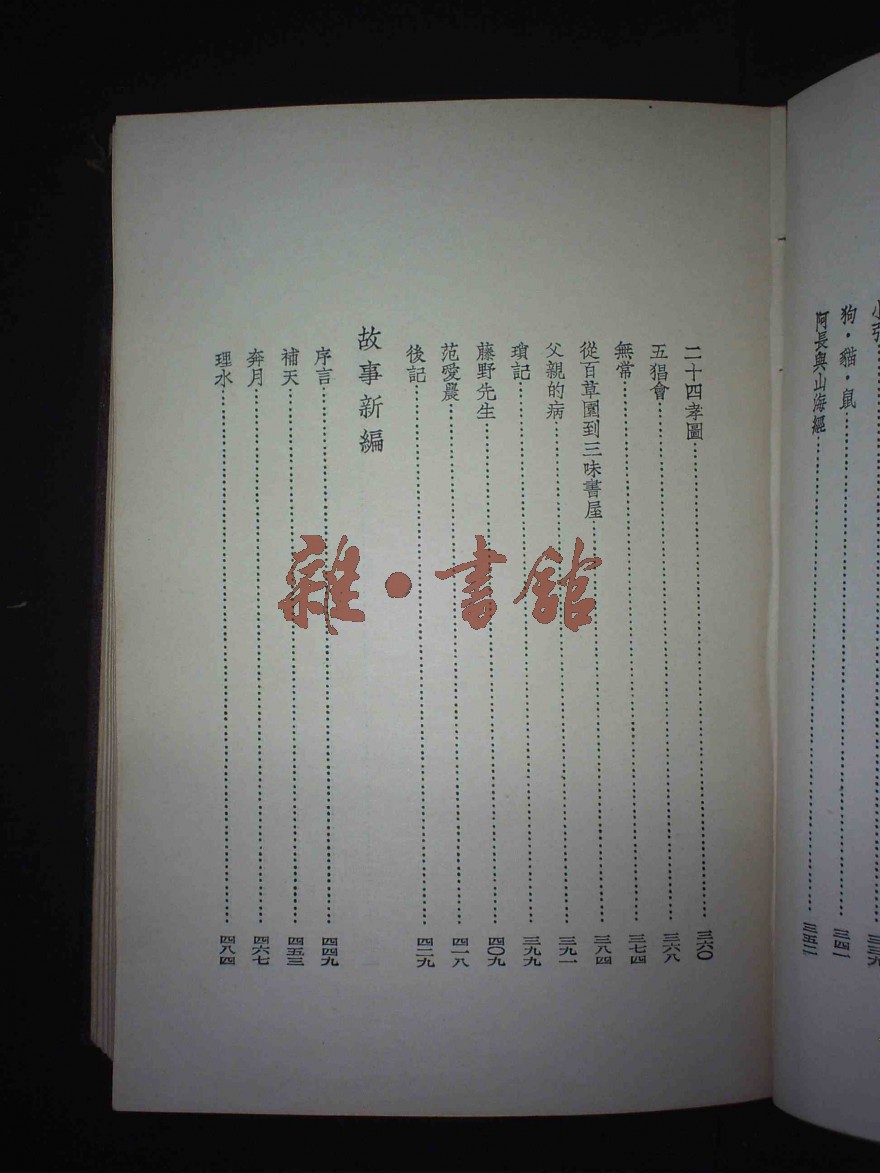 小引 三三九
狗・貓・鼠 三四一
阿長與山海經 三五二
二十四孝圖 三六〇
五猖會 三六八
無常 三七四
從百草園到三味書屋 三八四
父親的病 三九一
瑣記 三九九
藤野先生 四〇九
范愛農 四一八
後記 四二九
故事新編
序言 四四九
補天 四五三
奔月 四六七
理水 四八四
雜・書館